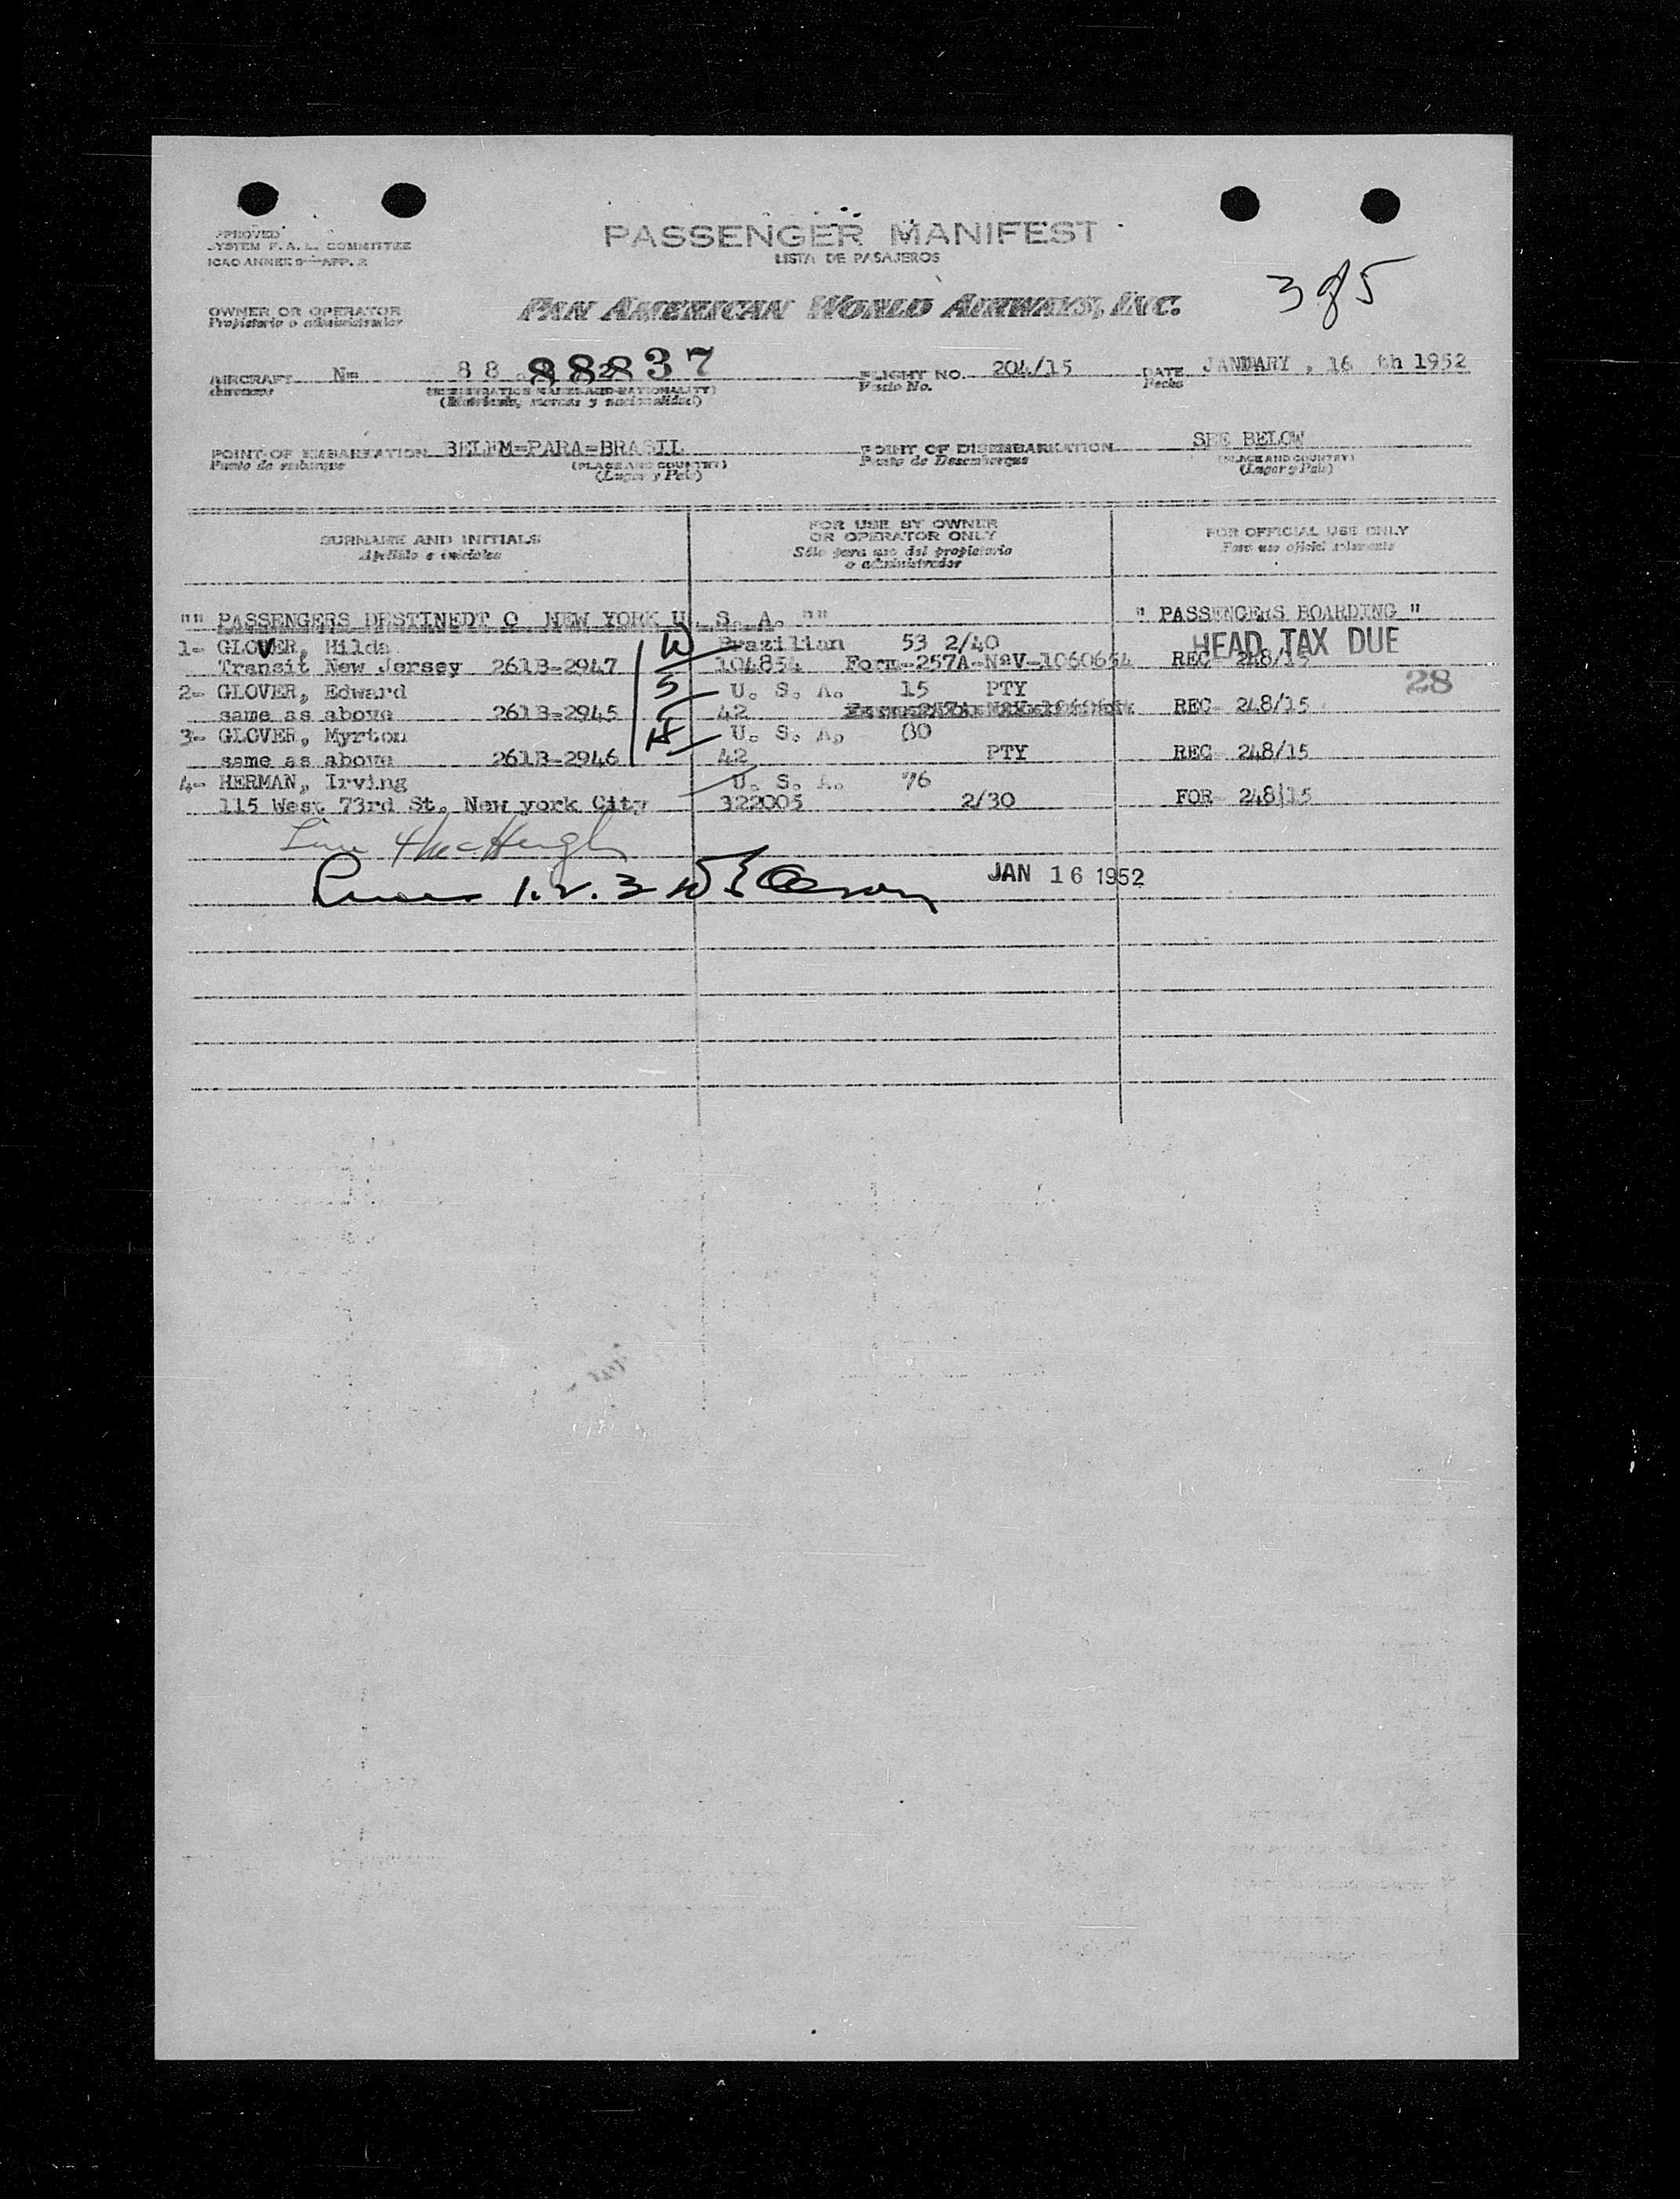 APPROVED
SYSTEM F. A. L. COMMITTEE
ICAO ANNEX 9—APP. 2
PASSENGER MANIFEST
LISTA DE PASAJEROS
3 of 5
OWNER OR OPERATOR PAN AMERICAN WORLD AIRWAYS, INC.
Propietario o administrador
AIRCRAFT N= 88 88837 FLIGHT NO. 204/15 DATE JANUARY , 16 th 1952
Aeronave (REGISTRATION MARKS AND NATIONALITY) Vuelo No. Fecha
(Matrícula, marcas y nacionalidad)
POINT OF EMBARKATION BELEM=PARA=BRASIL POINT OF DISEMBARKATION SEE BELOW
Punto de embarque (PLACE AND COUNTRY) Punto de Desembarque (PLACE AND COUNTRY)
(Lugar y País) (Lugar y País)
SURNAME AND INITIALS FOR USE BY OWNER OR OPERATOR ONLY FOR OFFICIAL USE ONLY
Apellido e iniciales Sólo para uso del propietario o administrador Para uso oficial solamente
"" PASSENGERS DESTINEDT O NEW YORK U. S. A. "" " PASSENGERS BOARDING "
1- GLOVER, Hilda W Brazilian 53 2/40 HEAD TAX DUE
Transit New Jersey 261B-2947 104854 Form-257A-NºV-1060654 REC- 248/15
2- GLOVER, Edward S U. S. A. 15 PTY 28
same as above 261B-2945 42 REC- 248/15
3- GLOVER, Myrton U. S. A. 60
same as above 261B-2946 42 PTY REC- 248/15
4- HERMAN, Irving U. S. A. 76
115 West 73rd St. New york City 322005 2/30 FOR- 248/15
Line 4
1. 2. 3 JAN 16 1952